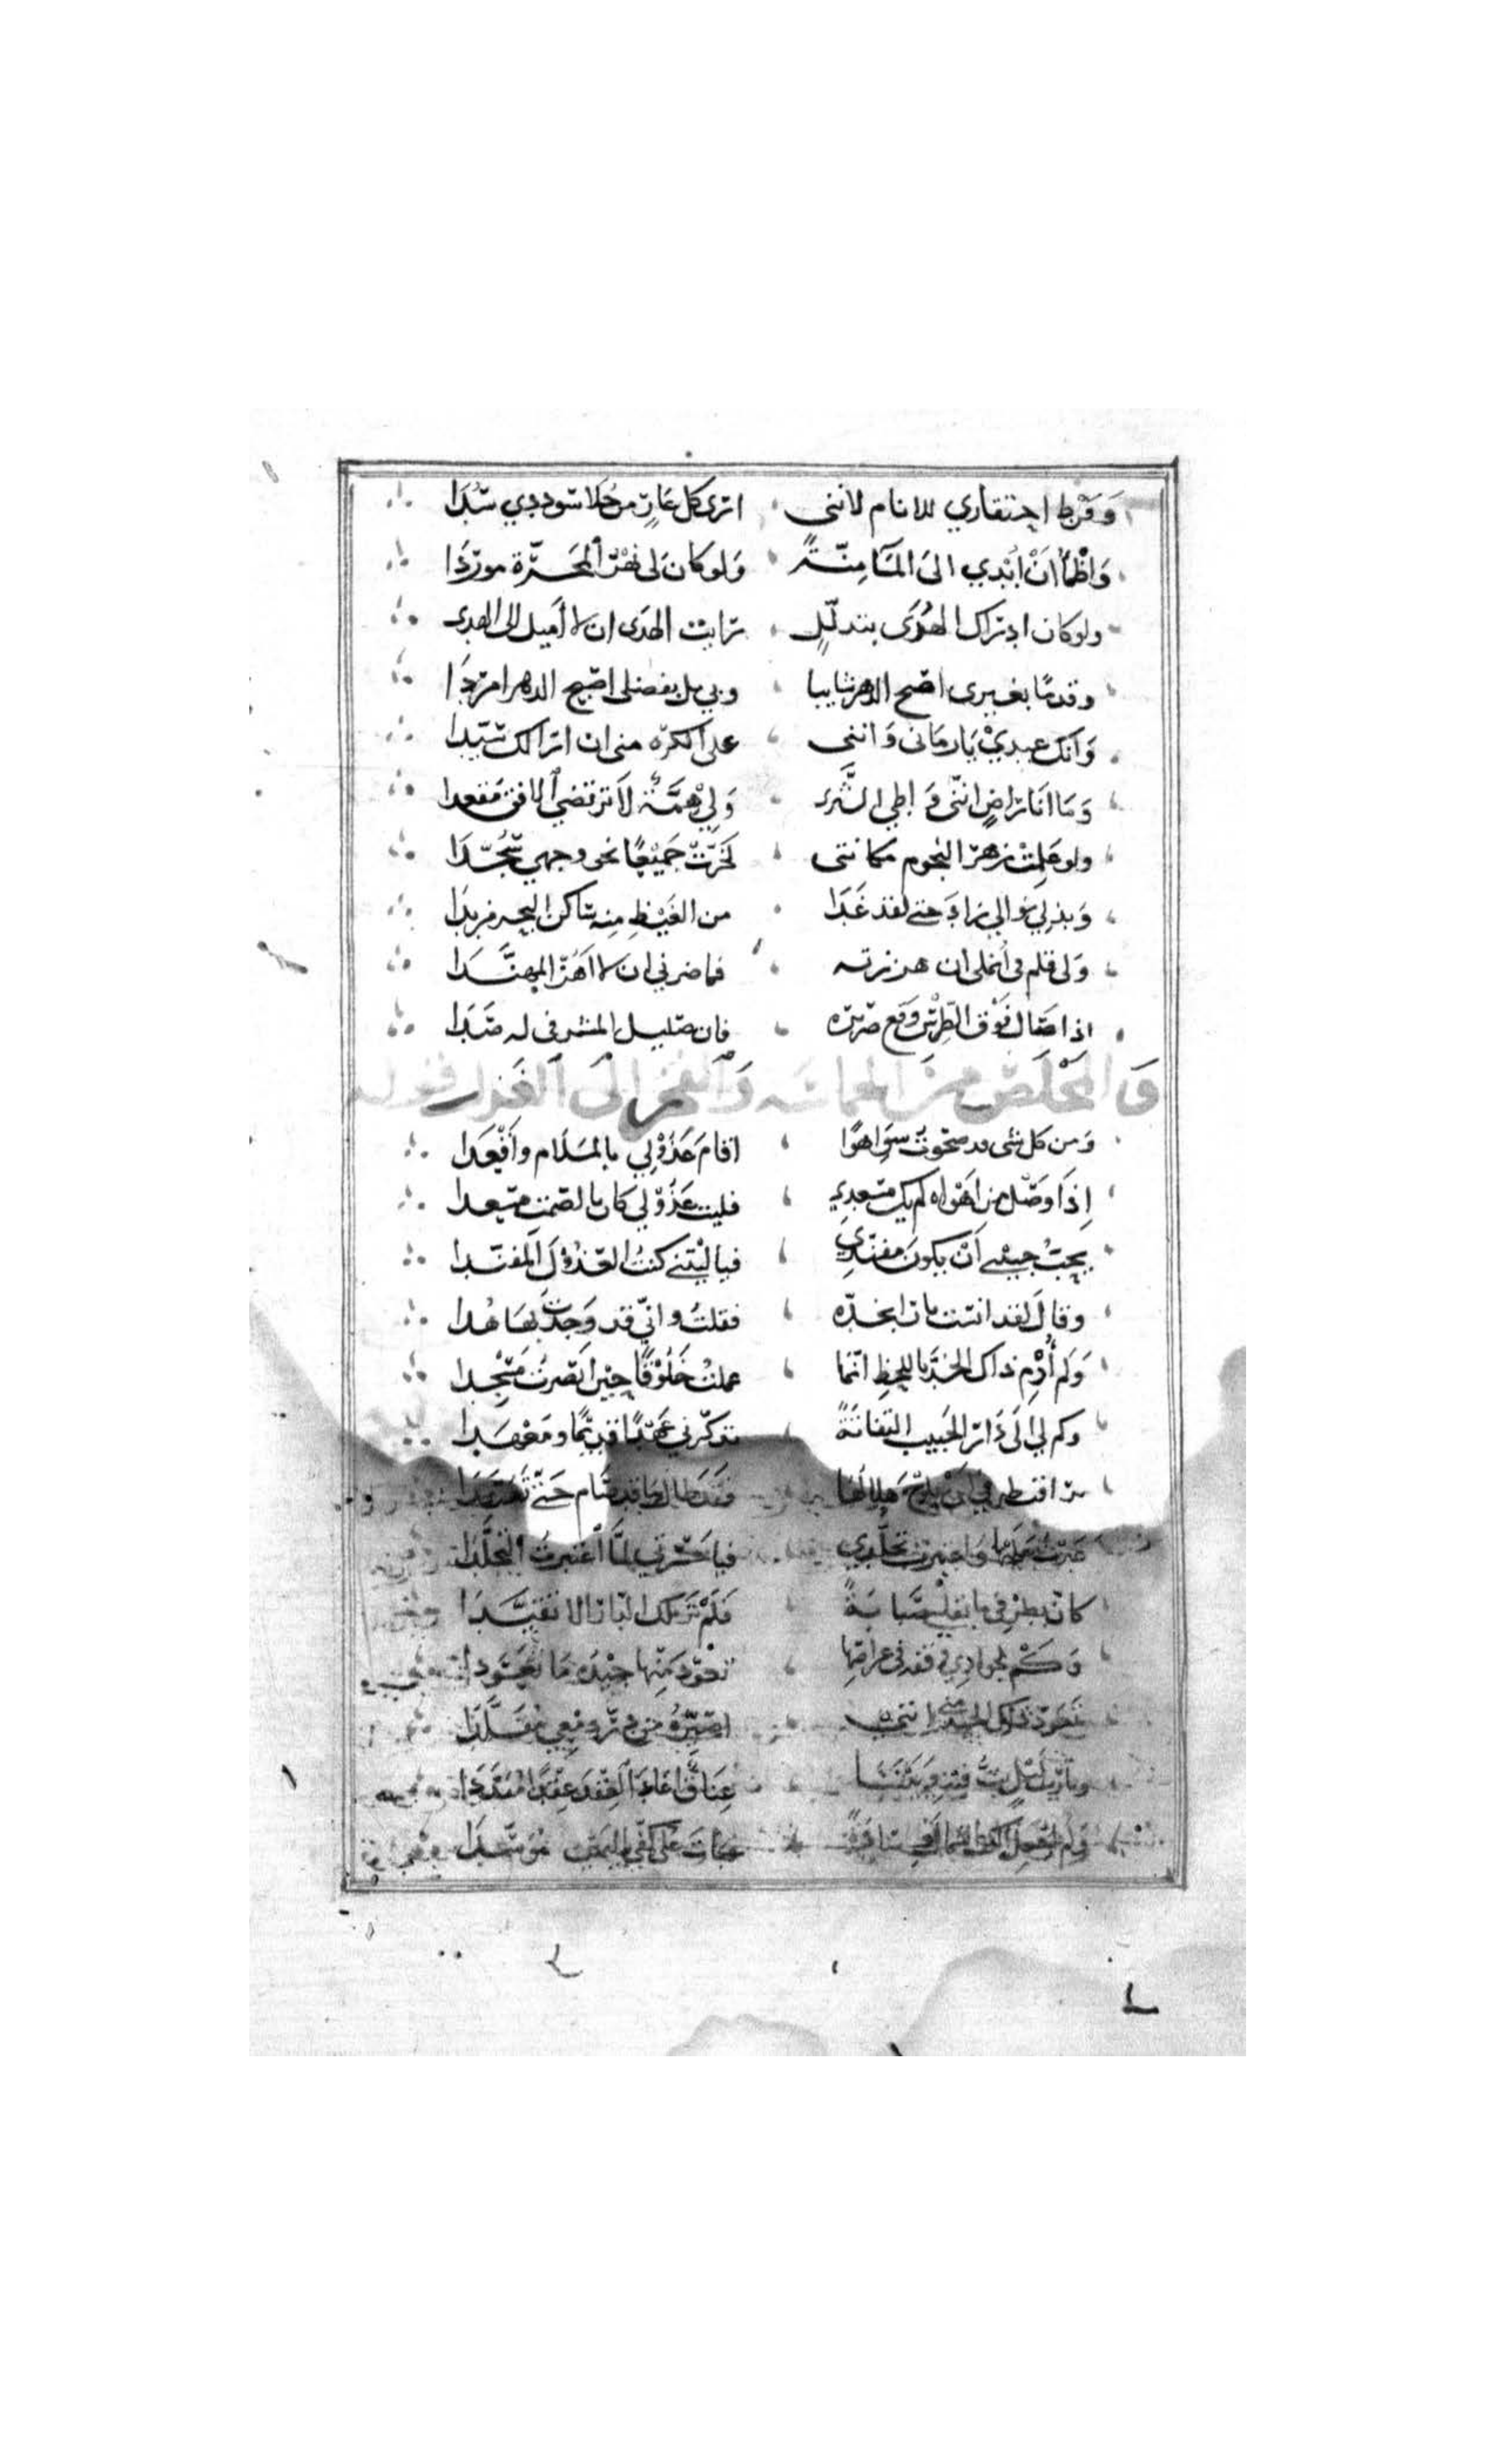 وَفَرط احتقاري للانام لانني اترى كل عَارٍ من حُلا سوددي سُدَا
وَاظْمأ انْ ابْدي الىَ المآ مِنّةً وَلو كان لى نهْر المَجَرّة موردَا
ولو كان ادراك الهُدَى بتذلّلٍ رايت الهدَى ان لا اميل الى الهدى
وقدمًا بغيرى اصبح الدهر شايبا وبي بل بفضلى اصبح الدهر امردَا
وَانك عبديْ يَا زمَانى وَانني على الكره منى ان ارى لك سيّدا
وَمَا انَا رَاضٍ انّنى وَاطي الثَّرى وَلِيْ هِمَّةٌ لاَ ترتضي الافق مَقعدا
ولو عَلِمتْ زهرُ النجوم مكانتى لخَرّتْ جَمِيْعًا نحو وجهي سُجّدَا
وَبذلِي نوالي زادَ حتى لقد غَدَا من الغَيْظِ مِنه ساكن البحر مزبدَا
وَلى قلم فى انملى ان هززته فما ضرني ان لا اَهُزّ المهنَّدَا
اذا صَال فوْق الطِرْسِ وَقع صريره فان صليل المشرفى له صَدَا
وَ المخْلَص منَ الحماسَه وَالفخر الَى الغَزَل قوله
وَمن كل شى قد صحوتُ سِوَا هوًا اقامَ عَذُوْلِي بالمَلَام وَاَقْعَدَا
اِذَا وَصْل من اَهْوَاه لم يك مسعدي فليت عَذُوْلي كان بالصّمت مسعدا
يحبُّ حبيبي اَنْ يكونَ مفنّدِي فيا لَيْتني كنتُ العَذُوْلَ المفنّدا
وقالَ لقد انست نارا بخدّه فقلتُ وانّي قد وَجدْتُ بهَا هُدا
وَلم أُدْمِ ذاك الخدَّ باللحظِ انّما عملتُ خَلُوْقًا حِيْن ابْصرتُ مَسْجِدا
وكم لي الَى دَار الحَبيب التفاتَةً تذكّرني عَهْدًا قديْمًا ومَعْهَدا
فقَد طَال مَا قد نَام حَتّى تَهَجَّدَا
فيا حَسْرتي لمَّا اَ عْتبرتُ التجلّدَا
كان بطرفي ما بقلبي صَبَابَةً فَلَمْ تَرَ تلك الدّار الا تقيَّدَا
وَكمْ لجوادِي وَقفه فى عراصِهَا تعَوّد منْها جِيْده مَا تعَوَّدا
اصَيِّرُه من دُرّ دَمْعِي مُقَلَّدَا
عِنَاقًا اعَادَ العِقْدَ عِقْدًا مُبَدَّدَا
عَلى كفّي اليَمِيْن مُوَسَّدَا